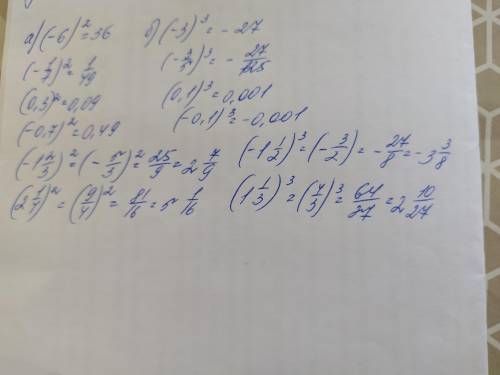 а) (-6)² = 36
(-1/7)² = 1/49
(0,3)² = 0,09
(-0,7)² = 0,49
(-1 2/3)² = (-5/3)² = 25/9 = 2 7/9
(2 1/4)² = (9/4)² = 81/16 = 5 1/16
б) (-3)³ = - 27
(-3/5)³ = - 27/125
(0,1)³ = 0,001
(-0,1)³ = -0,001
(-1 1/2)³ = (-3/2) = - 27/8 = -3 3/8
(1 1/3)³ = (4/3)³ = 64/27 = 2 10/27